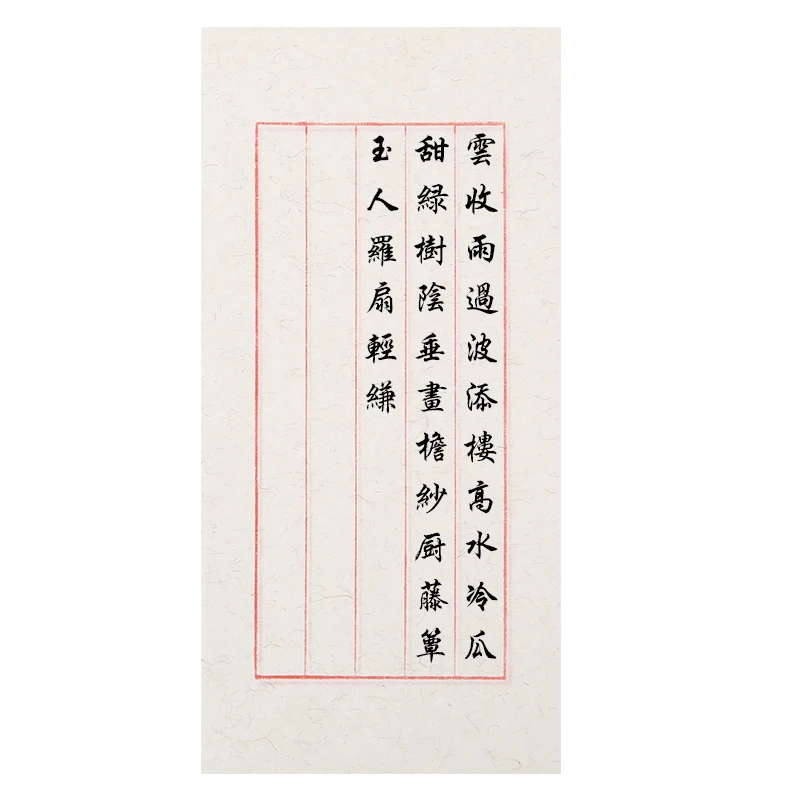 雲收雨過波添樓高水冷瓜
甜緑樹陰垂畫檐紗厨藤簟
玉人羅扇輕縑